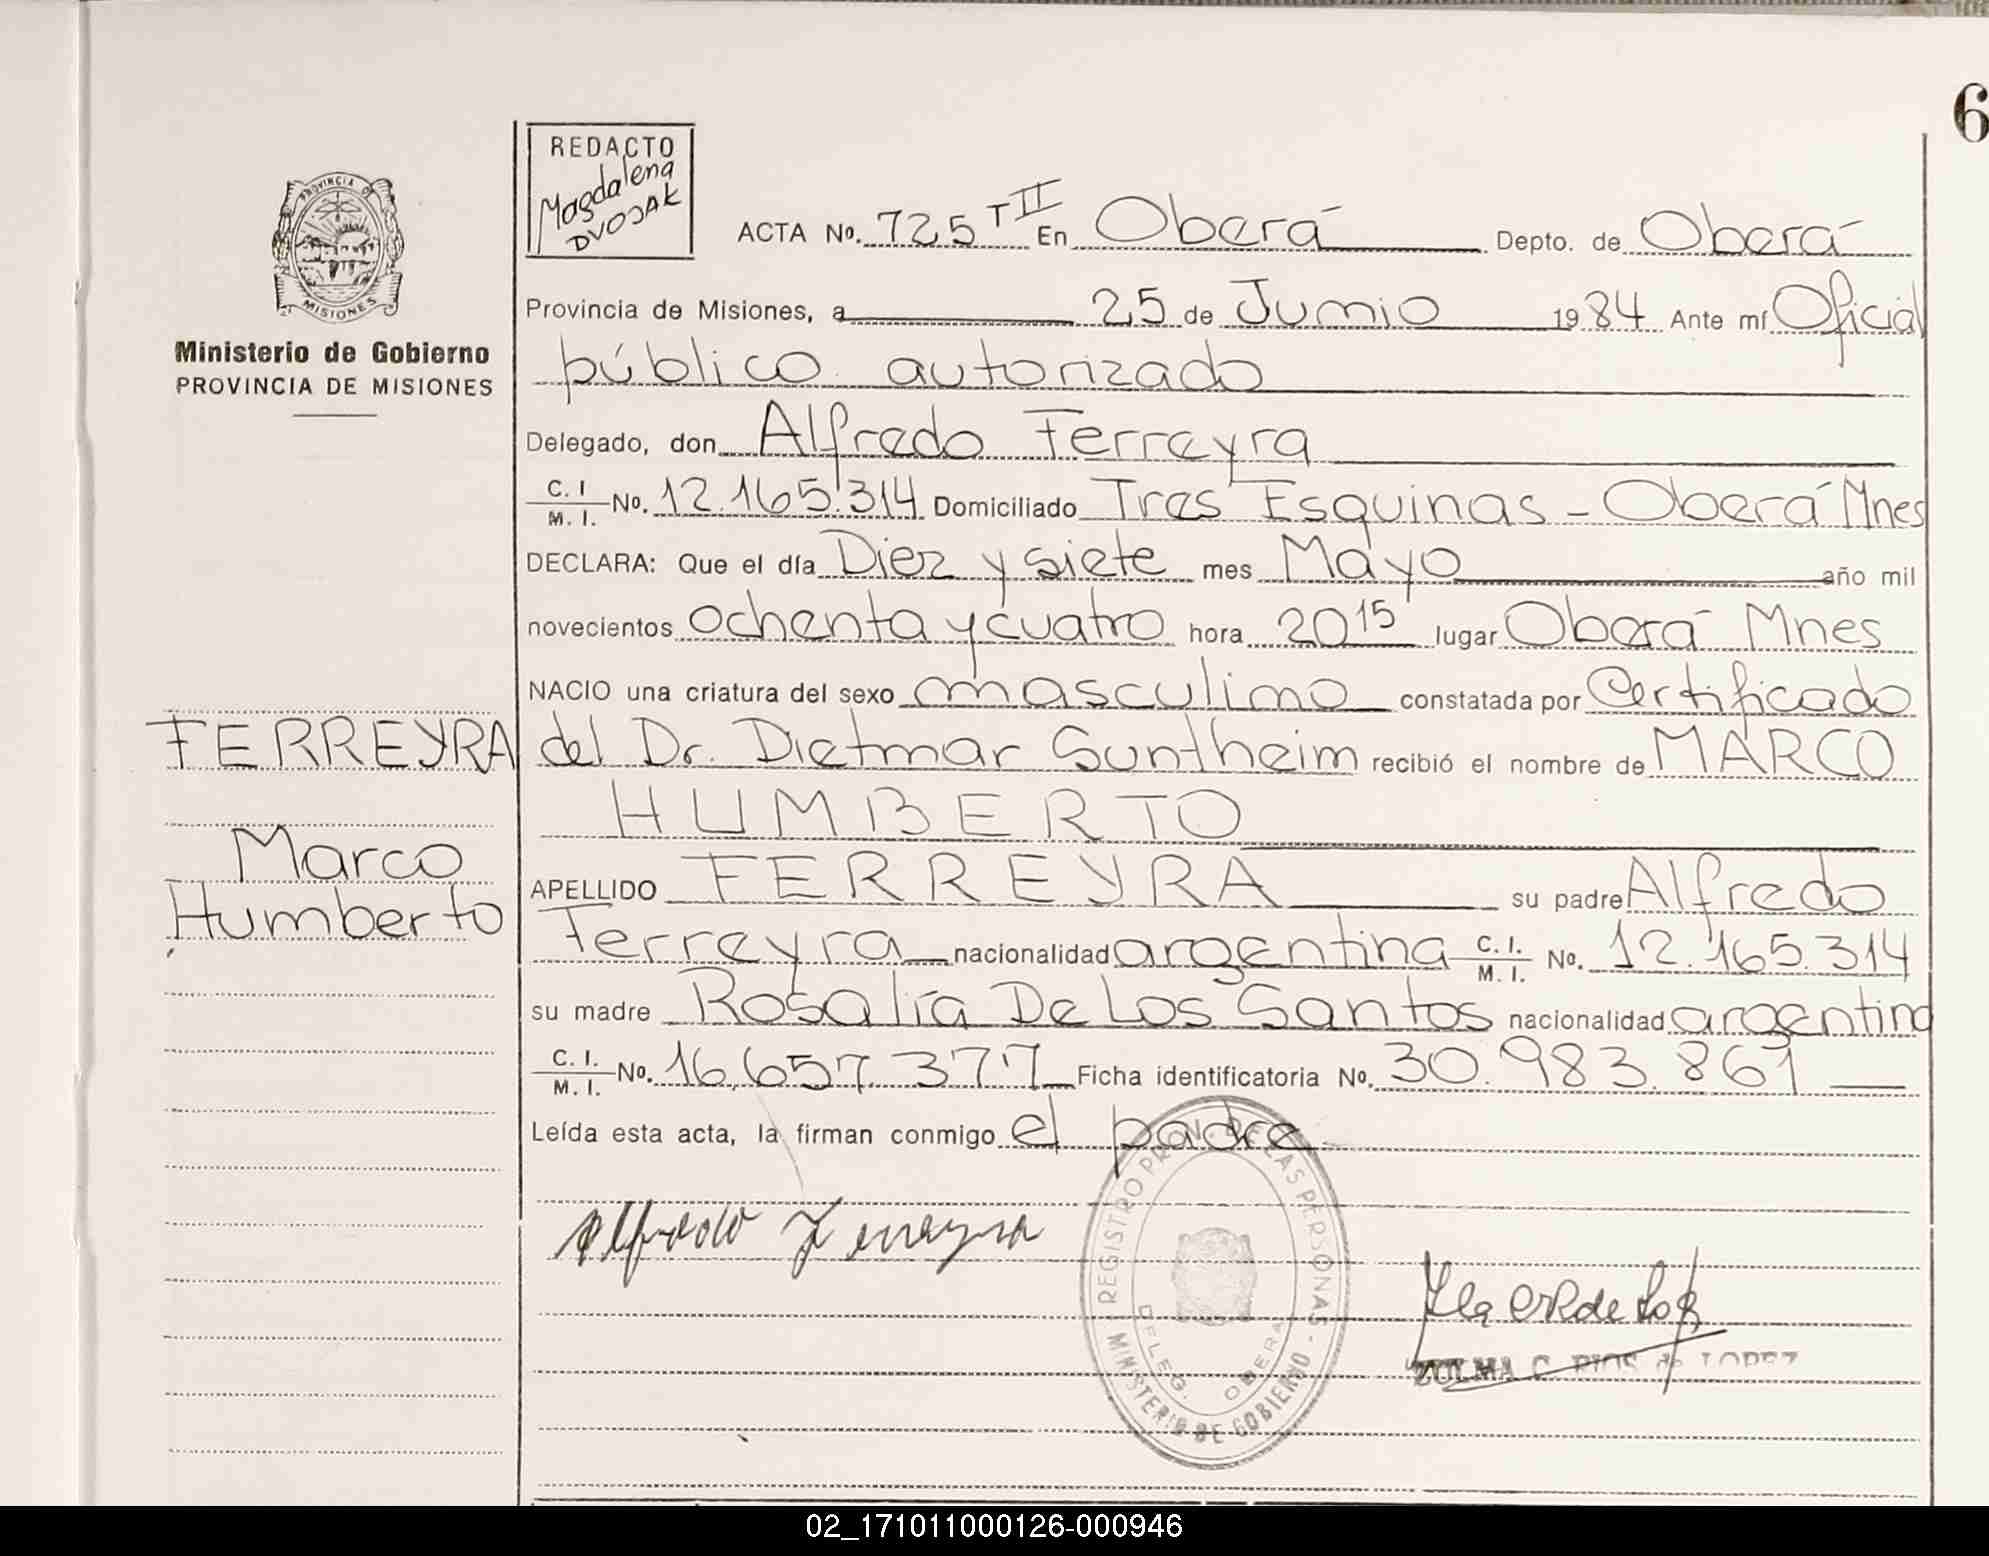 6
REDACTO
Magdalena
DVOSAK
PROVINCIA DE
MISIONES
Ministerio de Gobierno
PROVINCIA DE MISIONES
ACTA No. 725 T II En Oberá Depto. de Oberá
Provincia de Misiones, a 25 de Junio 1984 Ante mí Oficial
público autorizado
Delegado, don Alfredo Ferreyra
C. I / M. I. No. 12.165.314 Domiciliado Tres Esquinas - Oberá Mnes
DECLARA: Que el día Diez y siete mes Mayo año mil
novecientos ochenta y cuatro hora 20 15 lugar Oberá Mnes
NACIO una criatura del sexo masculino constatada por Certificado
FERREYRA
del Dr. Dietmar Suntheim recibió el nombre de MARCO
HUMBERTO
Marco
Humberto
APELLIDO FERREYRA su padre Alfredo
Ferreyra nacionalidad argentina C. I. / M. I. No. 12.165.314
su madre Rosalía De Los Santos nacionalidad argentina
C. I. / M. I. No. 16.657.377 Ficha identificatoria No. 30.983.861
Leída esta acta, la firman conmigo el padre
Alfredo Ferreyra
REGISTRO PROV. DE LAS PERSONAS - MINISTERIO DE GOBIERNO
DELEG. OBERA
ZULMA C. RIOS de LOPEZ
02_171011000126-000946